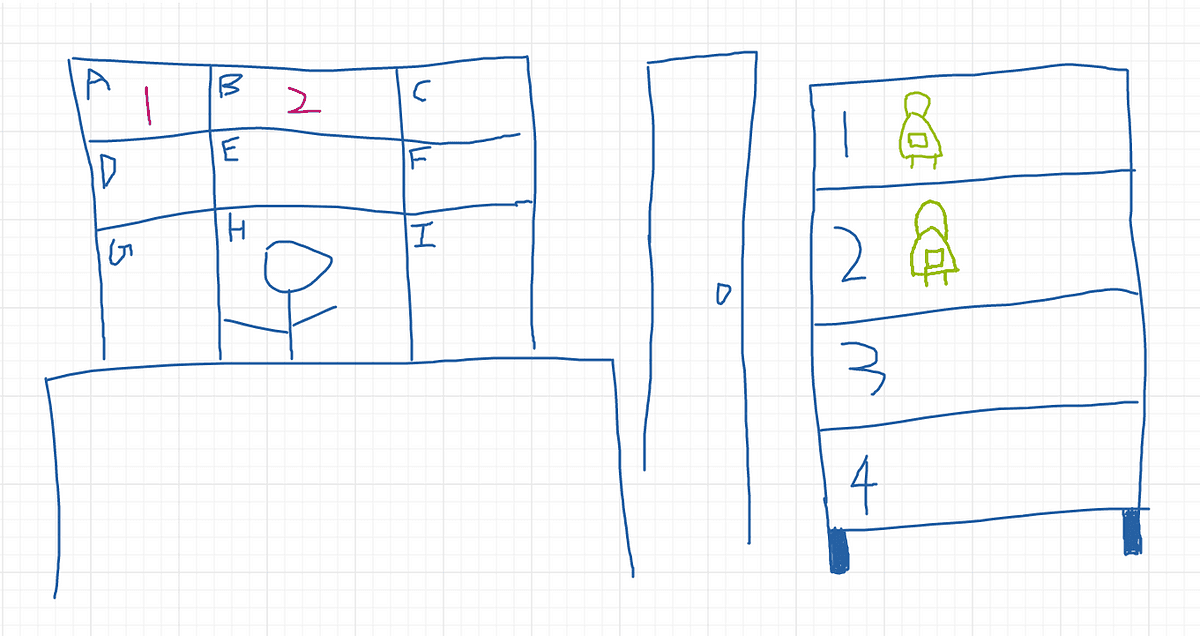 A 1 B 2 C
D E F
G H I
1
2
3
4